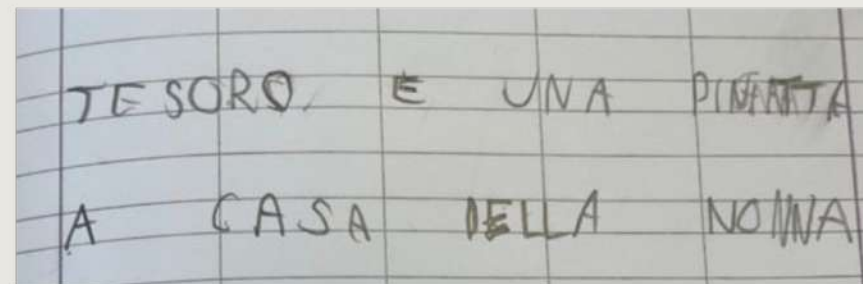 TESORO, E UNA PINATTA
A CASA DELLA NONNA